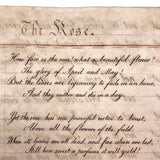 The Rose.
How fair is the rose, what a beautiful flower!
The glory of April and May!
But the leaves are beginning to fade in an hour,
And they wither and die in a day.
Yet the rose has one powerful virtue to boast,
Above all the flowers of the field.
When its leaves are all dead, and fine colours are lost,
Still how sweet a perfume it will yield!